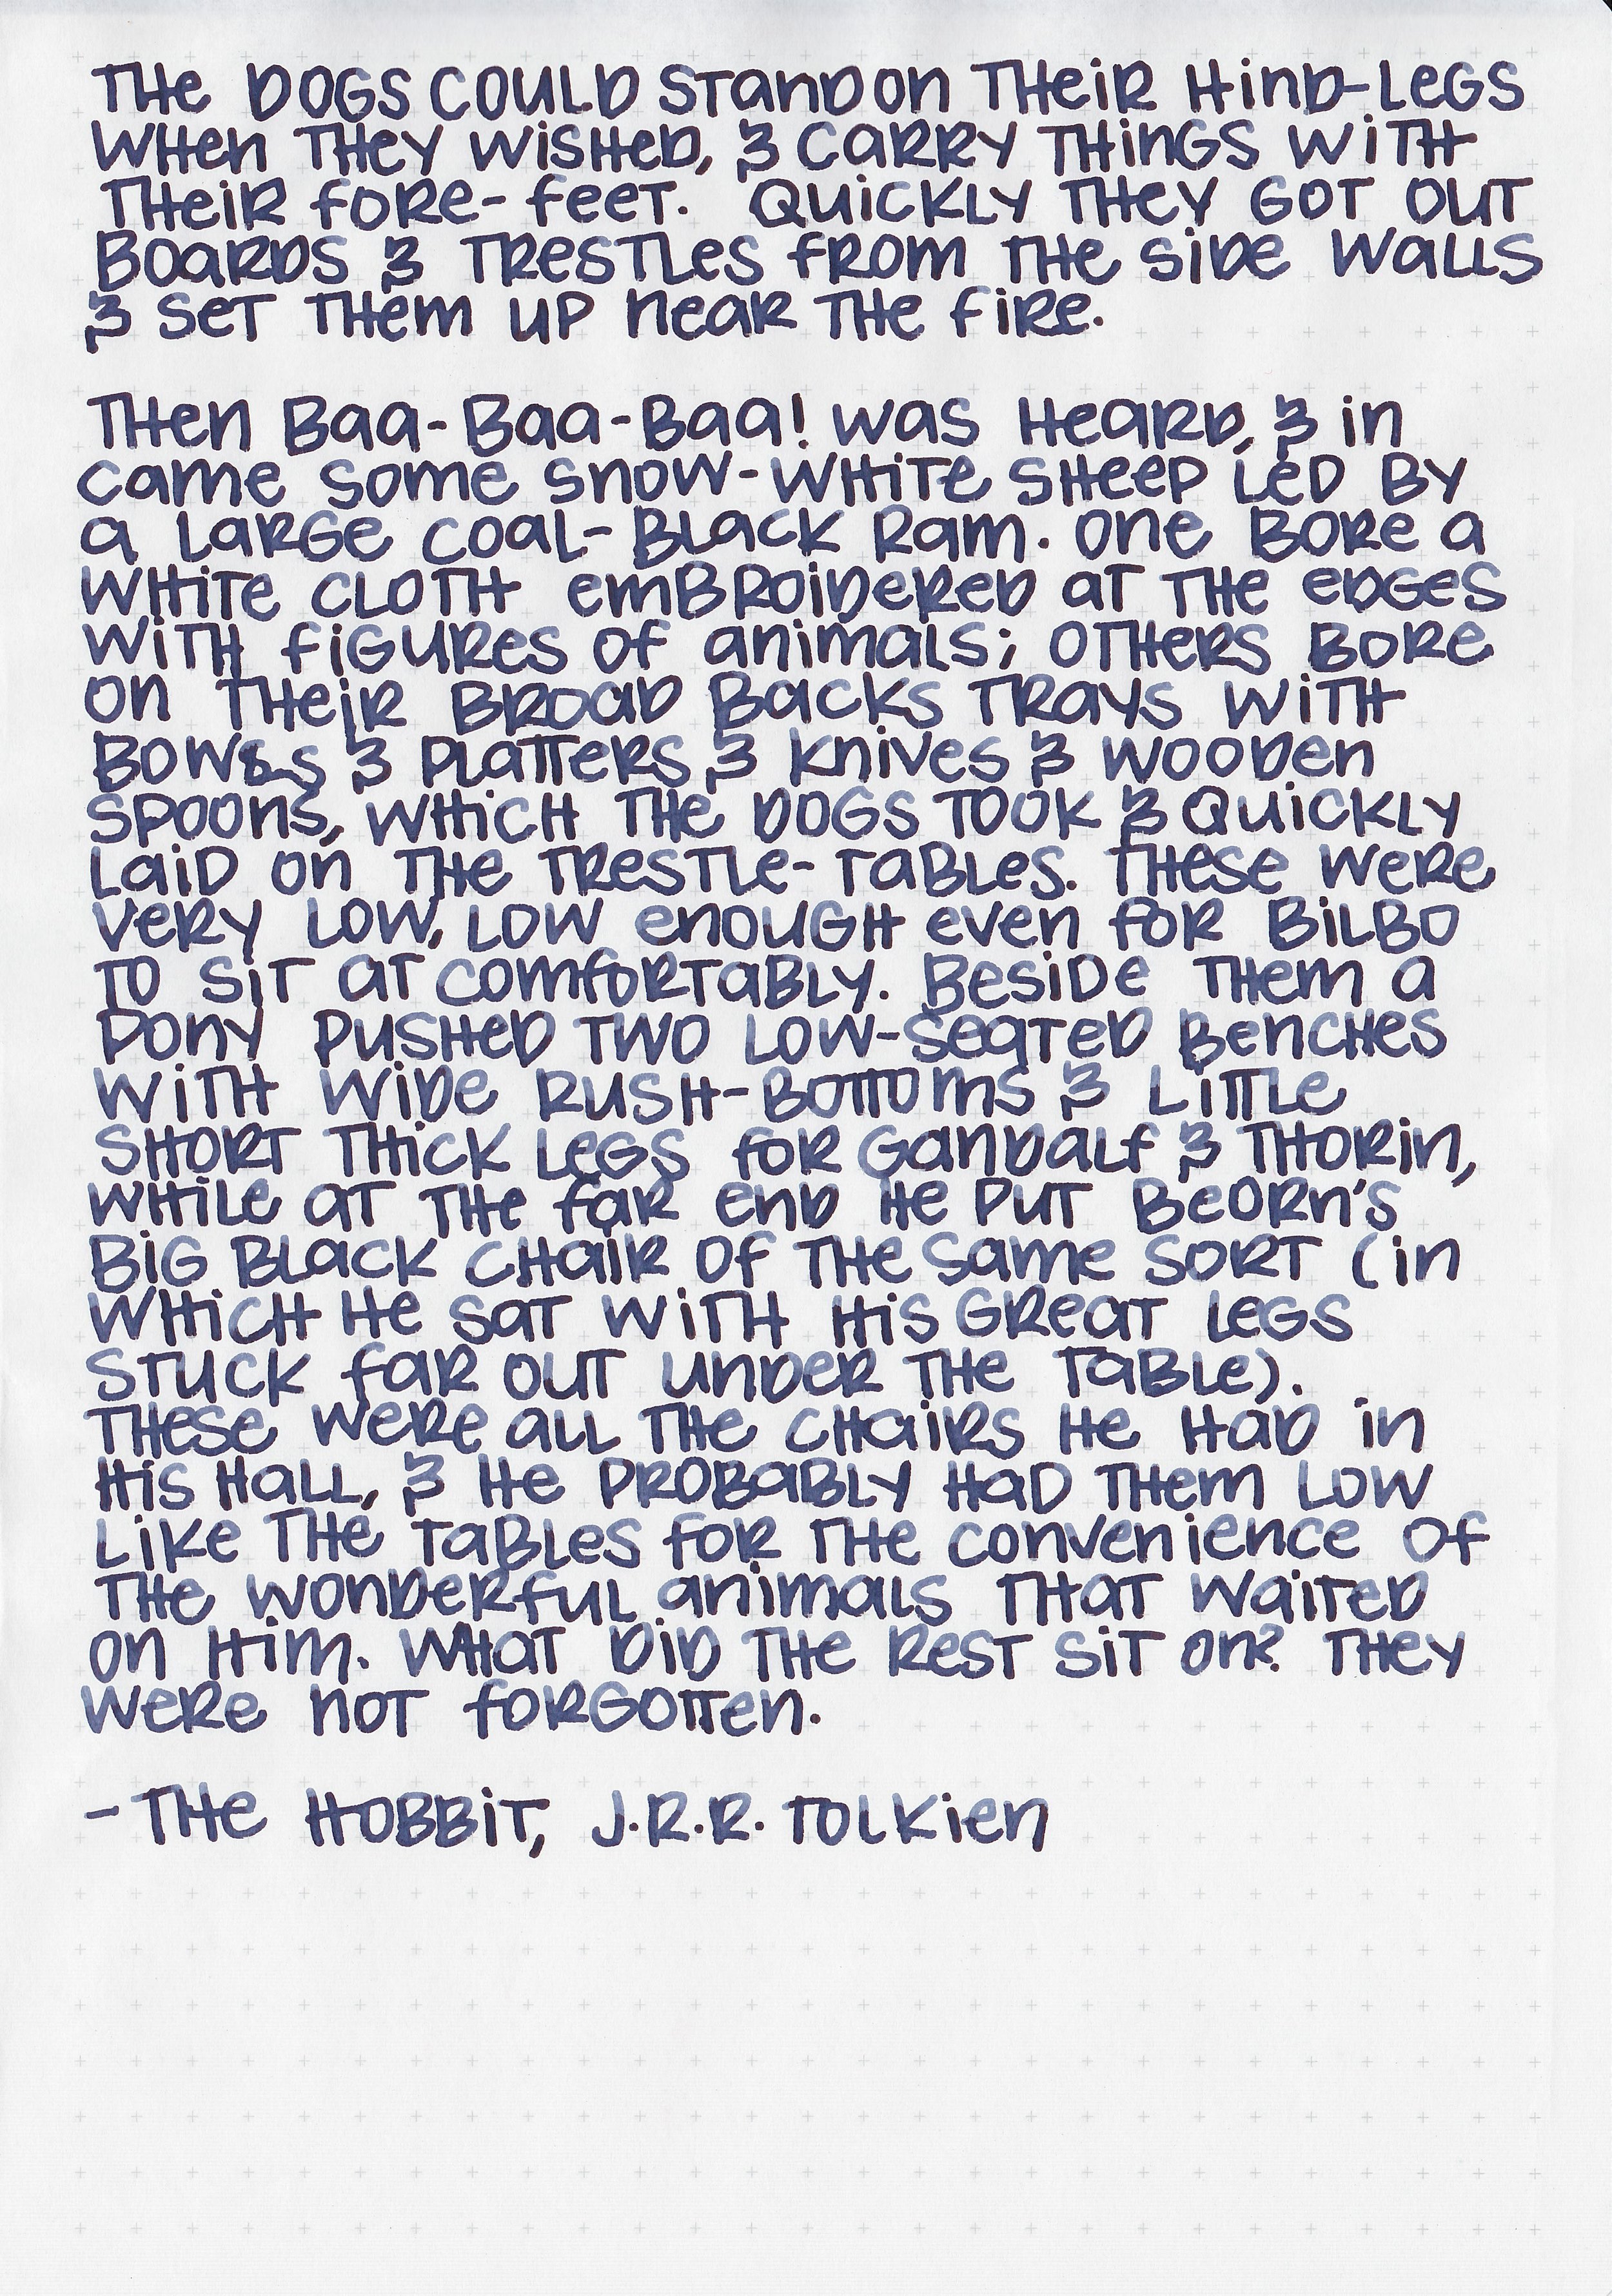 The dogs could stand on their hind-legs
when they wished, & carry things with
their fore-feet. Quickly they got out
boards & trestles from the side walls
& set them up near the fire.

Then Baa-Baa-Baa! was heard, & in
came some snow-white sheep led by
a large coal-black ram. One bore a
white cloth embroidered at the edges
with figures of animals; others bore
on their broad backs trays with
bowls & platters & knives & wooden
spoons, which the dogs took & quickly
laid on the trestle-tables. These were
very low, low enough even for Bilbo
to sit at comfortably. Beside them a
pony pushed two low-seated benches
with wide rush-bottoms & little
short thick legs for Gandalf & Thorin,
while at the far end he put Beorn's
big black chair of the same sort (in
which he sat with his great legs
stuck far out under the table).
These were all the chairs he had in
his hall, & he probably had them low
like the tables for the convenience of
the wonderful animals that waited
on him. What did the rest sit on? They
were not forgotten.

- The Hobbit, J.R.R. Tolkien